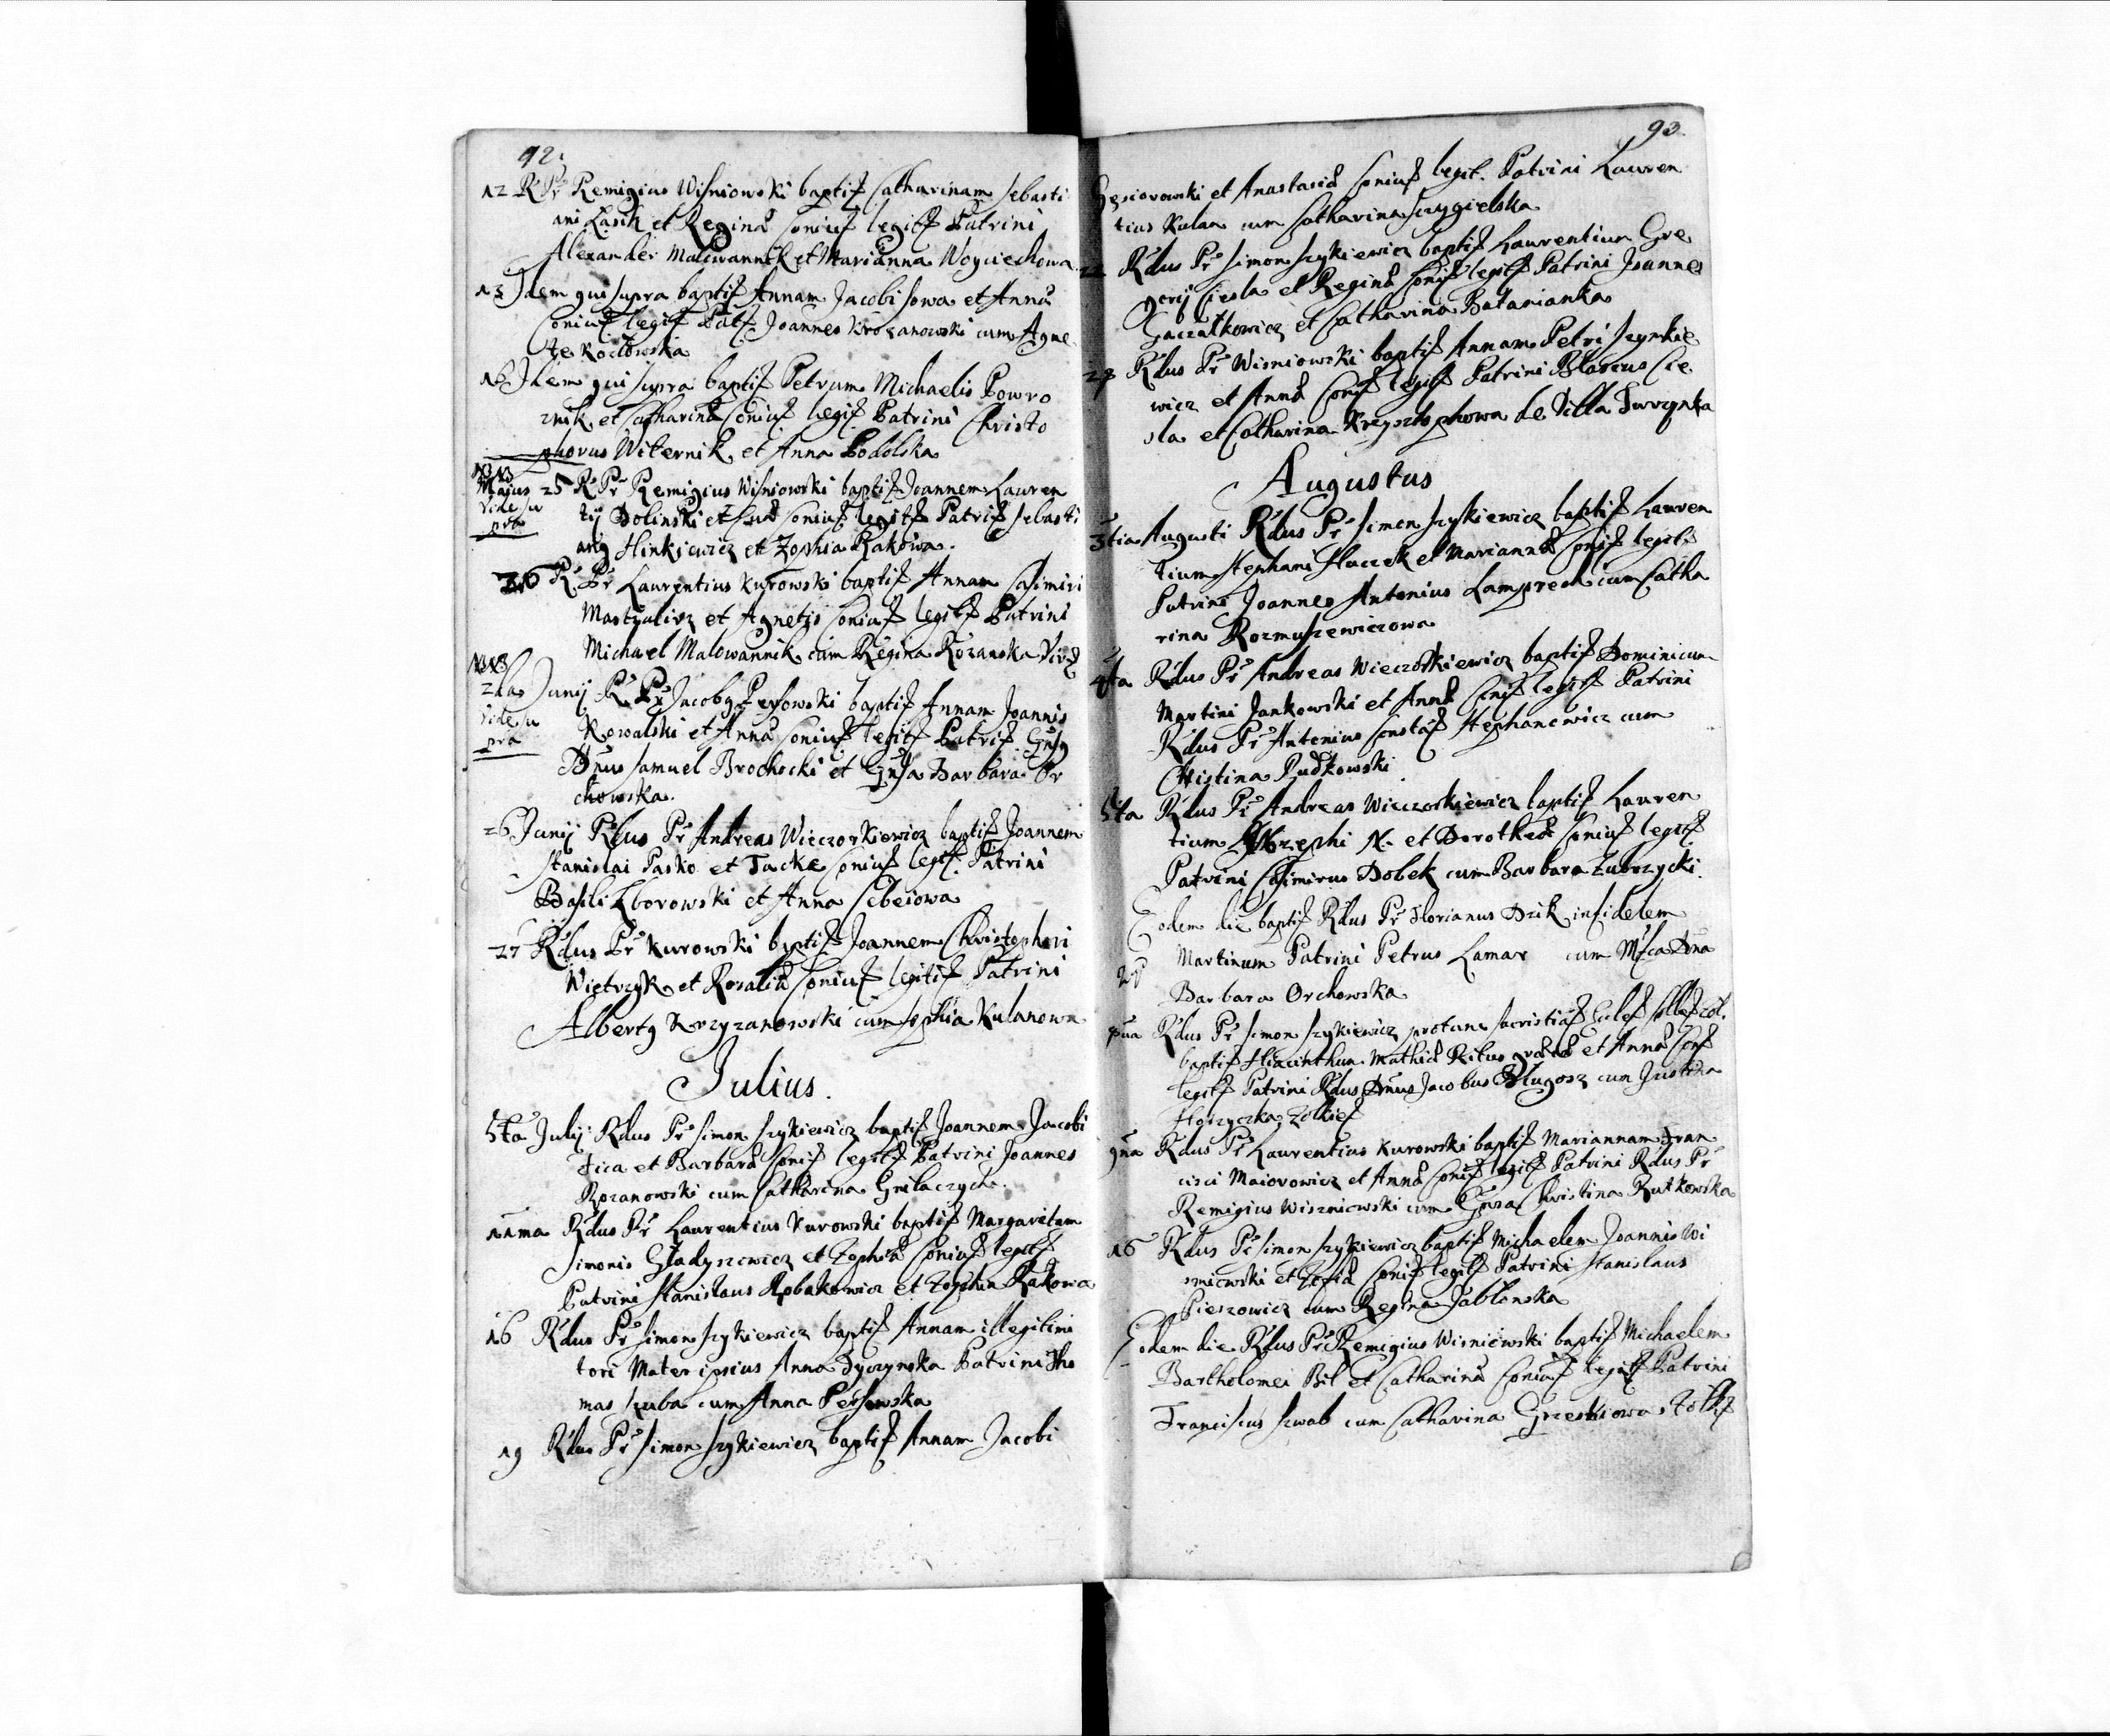 92.
12 R Pr Remigius Wisniowski baptis Catharinam Sebasti
ani Lasik et Regina Coniug legit Patrini
Alexander Malowannik et Marianna Woyciechowa
13 Idem qui supra baptis Annam Jacobi Sowa et Anna
Coniug legit Pat Joannes Krozanowski cum Agne
te Kozlowska
16 Idem qui supra baptis Petrum Michaelis Powro
znik et Catharina Coniug legit Patrini Christo
phorus Witernik et Anna Podolska
NB NB
Majus 25 R Pr Remigius Wisniowski baptis Joannem Lauren
vide su
pra
tij Dolinski et Coniug legit Patri Sebasti
ang Hinkiewicz et Zophia Rakowa.
R Pr Laurentius Kurowski baptis Annam Casimiri
et Agnetis Coniug legit Patrini
Michael Malowannik cum Regina Rozanska
NB
2da Junij R Pr Jacobg baptis Annam Joannis
vide su
pra
Kowalski et Anna Coniug legit Patri
Dnus Samuel Brochocki et Gnsa Barbara Or
chowska.
26 Junij Rdus Pr Andreas Wieczorkiewicz baptis Joannem
Stanislai Pasko et Tacke Coniug legit Patrini
Basili Zborowski et Anna Cebeiowa
27 Rdus Pr Kurowski baptis Joannem Christophori
Wietrzyk et Rozalia Coniug legit Patrini
Albertg Krzyzanowski cum Sophia Kulanowa
Julius.
5ta Julij Rdus Pr Simon Szykiewicz baptis Joannem Jacobi
Fica et Barbara Coniug legit Patrini Joannes
Rozanowski cum Catharina
11ma Rdus Pr Laurentius Kurowski baptis Margaritam
Simonis Gladyszewicz et Zophia Coniug legit
Patrini Stanislaus Robakowicz et Zophia Rakowa
16 Rdus Pr Simon Szykiewicz baptis Annam illegitimi
tori Mater ipsius Anna Dyczynska Patrini Tho
mas Szuba cum Anna
19 Rdus Pr Simon Szykiewicz baptis Annam Jacobi
93
Gesiorowski et Anastasia Coniug legit. Patrini Lauren
tius Kulan cum Catharina Szczygielska
22 Rdus Pr Simon Szykiewicz baptis Laurentium Gre
gerij Ciesla et Regina Coniug legit Patrini Joannes
Gaczalkowicz et Catharina Batarianka
Rdus Pr Wisniowski baptis Annam Petri Szymkie
wicz et Anna Coniug legit Patrini Blasius Cie
sla et Catharina Krzysztophowa de Villa Turzynka
Augustus
3tia Augusti Rdus Pr Simon Szykiewicz baptis Lauren
tium Stephani et Marianna Coniug legit
Patrini Joannes Antonius Lamprech cum Catha
rina Rozmuszewiczowa
4ta Rdus Pr Andreas Wieczorkiewicz baptis Dominicum
Martini Jankowski et Anna Coniug legit Patrini
Rdus Pr Antonius Stephanowicz cum
Christina Rudkowski
5ta Rdus Pr Andreas Wieczorkiewicz baptis Lauren
tium N. et Dorothea Coniug legit
Patrini Casimirus Dobek cum Barbara Zubrzycki.
Eodem die baptis Rdus Pr Florianus Dzik infidelem
Martinum Patrini Petrus Lamar cum Mca Dna
Barbara Orchowska
Rdus Pr Simon Szykiewicz protunc
baptis Hiacinthum Mathia et Anna Coniug
legit Patrini Rdus Dnus Jacobus Dlugosz cum Justina
Zolkie
9na Rdus Pr Laurentius Kurowski baptis Mariannam Fran
cisci Maiorowicz et Anna Coniug legit Patrini Rdus Pr
Remigius Wiszniewski cum Gnsa Christina Rutkowska
16 Rdus Pr Simon Szykiewicz baptis Michaelem Joannis Wi
sniewski et Zofia Coniug legit Patrini Stanislaus
Pieszowicz cum Regina Jablonska
Eodem die Rdus Pr Remigius Wisniewski baptis Michaelem
Bartholomei Bil et Catharina Coniug legit Patrini
Franciscus Szwab cum Catharina Grzeskiowa